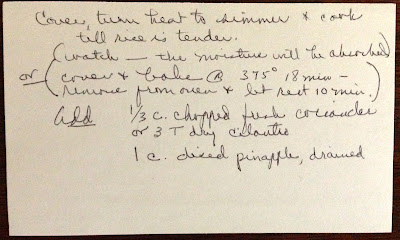 Cover, turn heat to simmer & cook
till rice is tender.
(watch — the moisture will be absorbed)
or (cover & bake @ 375° 18 min —
remove from oven & let rest 10 min.)
Add 1/3 c. chopped fresh coriander
or 3 T dry cilantro
1 c. diced pinapple, drained